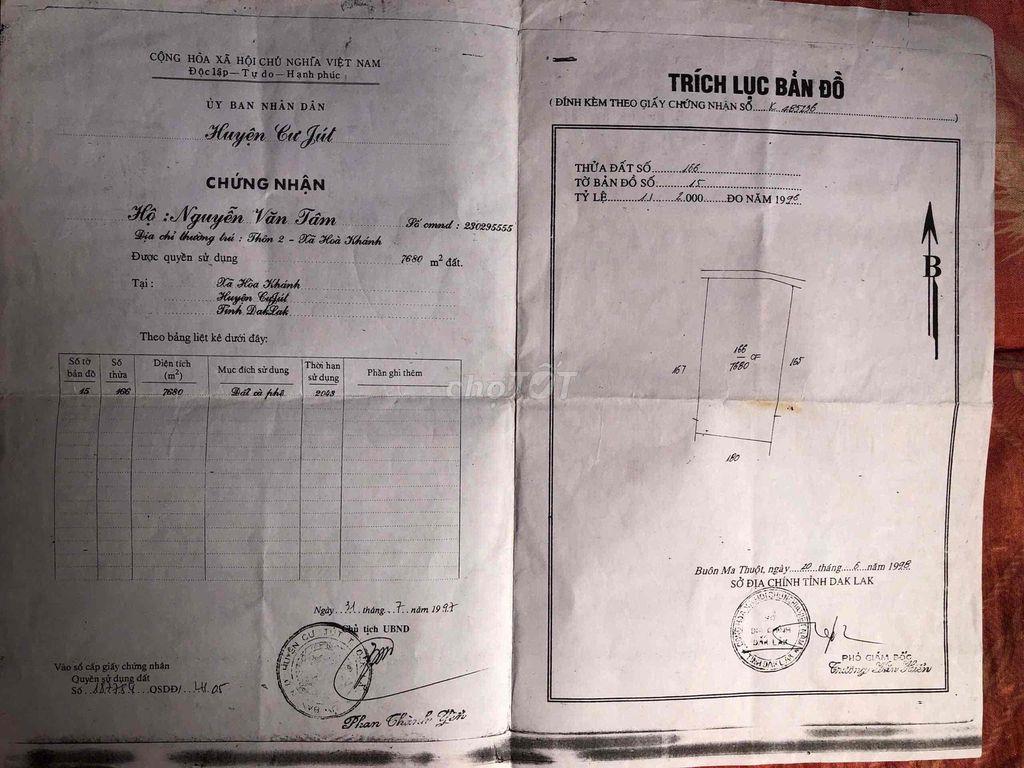 CỘNG HÒA XÃ HỘI CHỦ NGHĨA VIỆT NAM
Độc lập — Tự do — Hạnh phúc
ỦY BAN NHÂN DÂN
Huyện Cư Jút
CHỨNG NHẬN
Hộ : Nguyễn Văn Tâm Số cmnd : 230295555
Địa chỉ thường trú : Thôn 2 - Xã Hoà Khánh
Được quyền sử dụng 7680 m² đất.
Tại : Xã Hòa Khánh
Huyện CưJút
Tỉnh DakLak
Theo bảng liệt kê dưới đây:
Số tờ bản đồ Số thửa Diện tích (m²) Mục đích sử dụng Thời hạn sử dụng Phần ghi thêm
15 166 7680 Đất cà phê 2043
Ngày 31 tháng 7 năm 1997
Chủ tịch UBND
Vào sổ cấp giấy chứng nhận
Quyền sử dụng đất
Số QSDĐ/
Phan Thành Yên
TRÍCH LỤC BẢN ĐỒ
( ĐÍNH KÈM THEO GIẤY CHỨNG NHẬN SỐ K )
THỬA ĐẤT SỐ 166
TỜ BẢN ĐỒ SỐ 15
TỶ LỆ 1/ 2.000 ĐO NĂM 1996
B
166
7680
CF
167
165
180
Buôn Ma Thuột, ngày 20 tháng 6 năm 1998
SỞ ĐỊA CHÍNH TỈNH DAK LAK
PHÓ GIÁM ĐỐC
chợTỐT